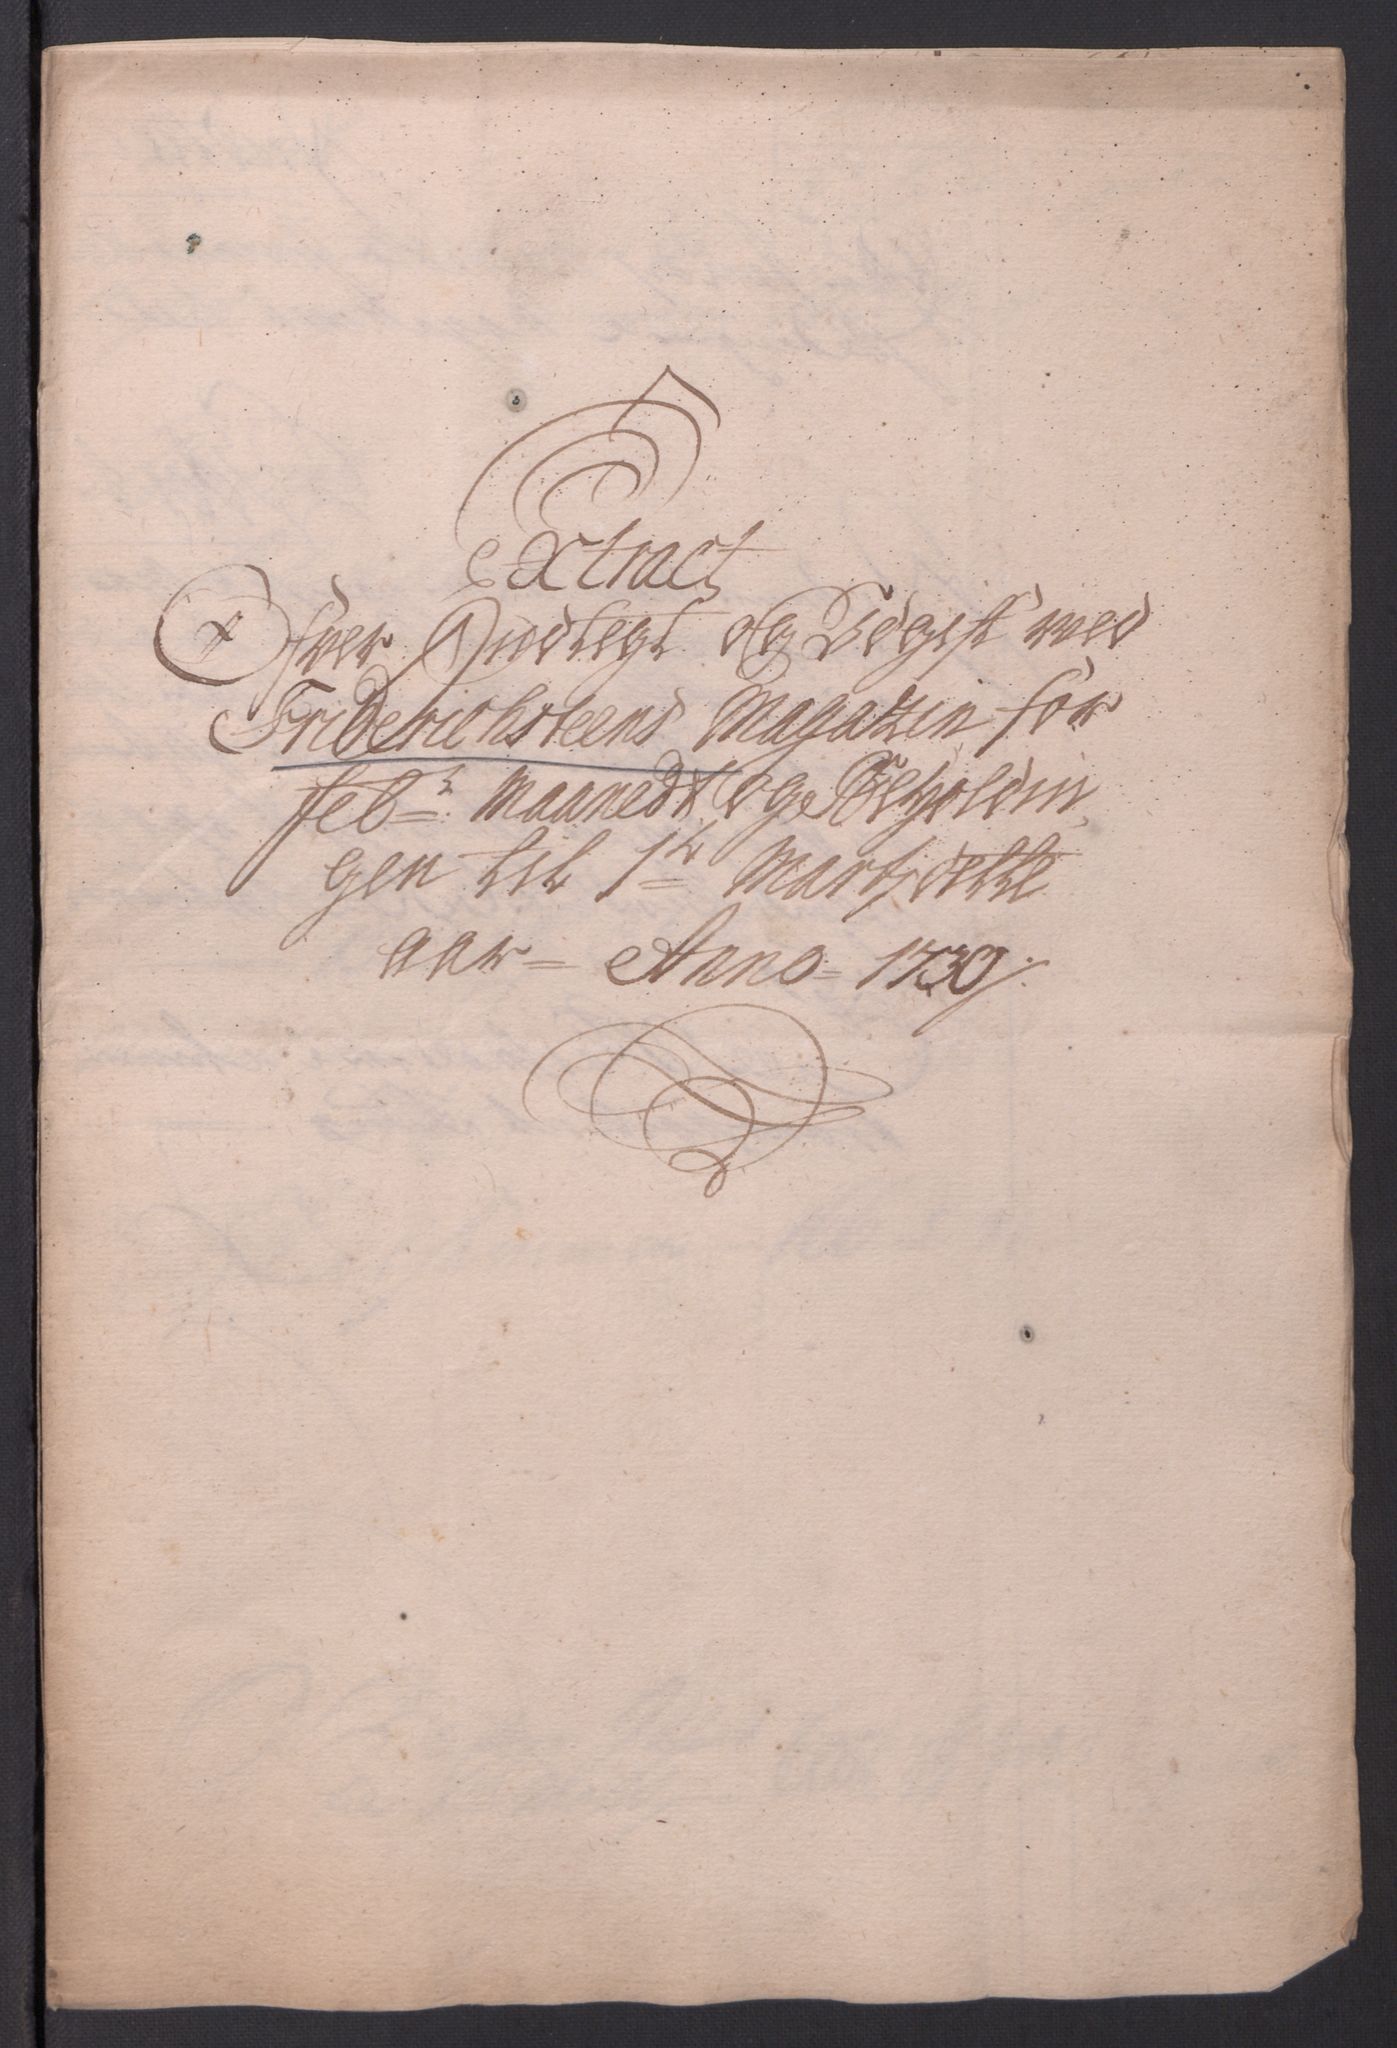 Extract
Ofver Indtegt og Udgift ved
Friderichsteens Magazin for
feb:r Maanedt og Beholdin
gen til 1te Marty dette
aar = Anno = 1730.